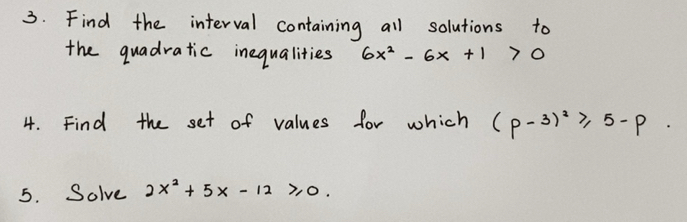 3. Find the interval containing all solutions to
the quadratic inequalities 6x² - 6x + 1 > 0
4. Find the set of values for which (p-3)² ≥ 5-p.
5. Solve 2x² + 5x - 12 ≥ 0.